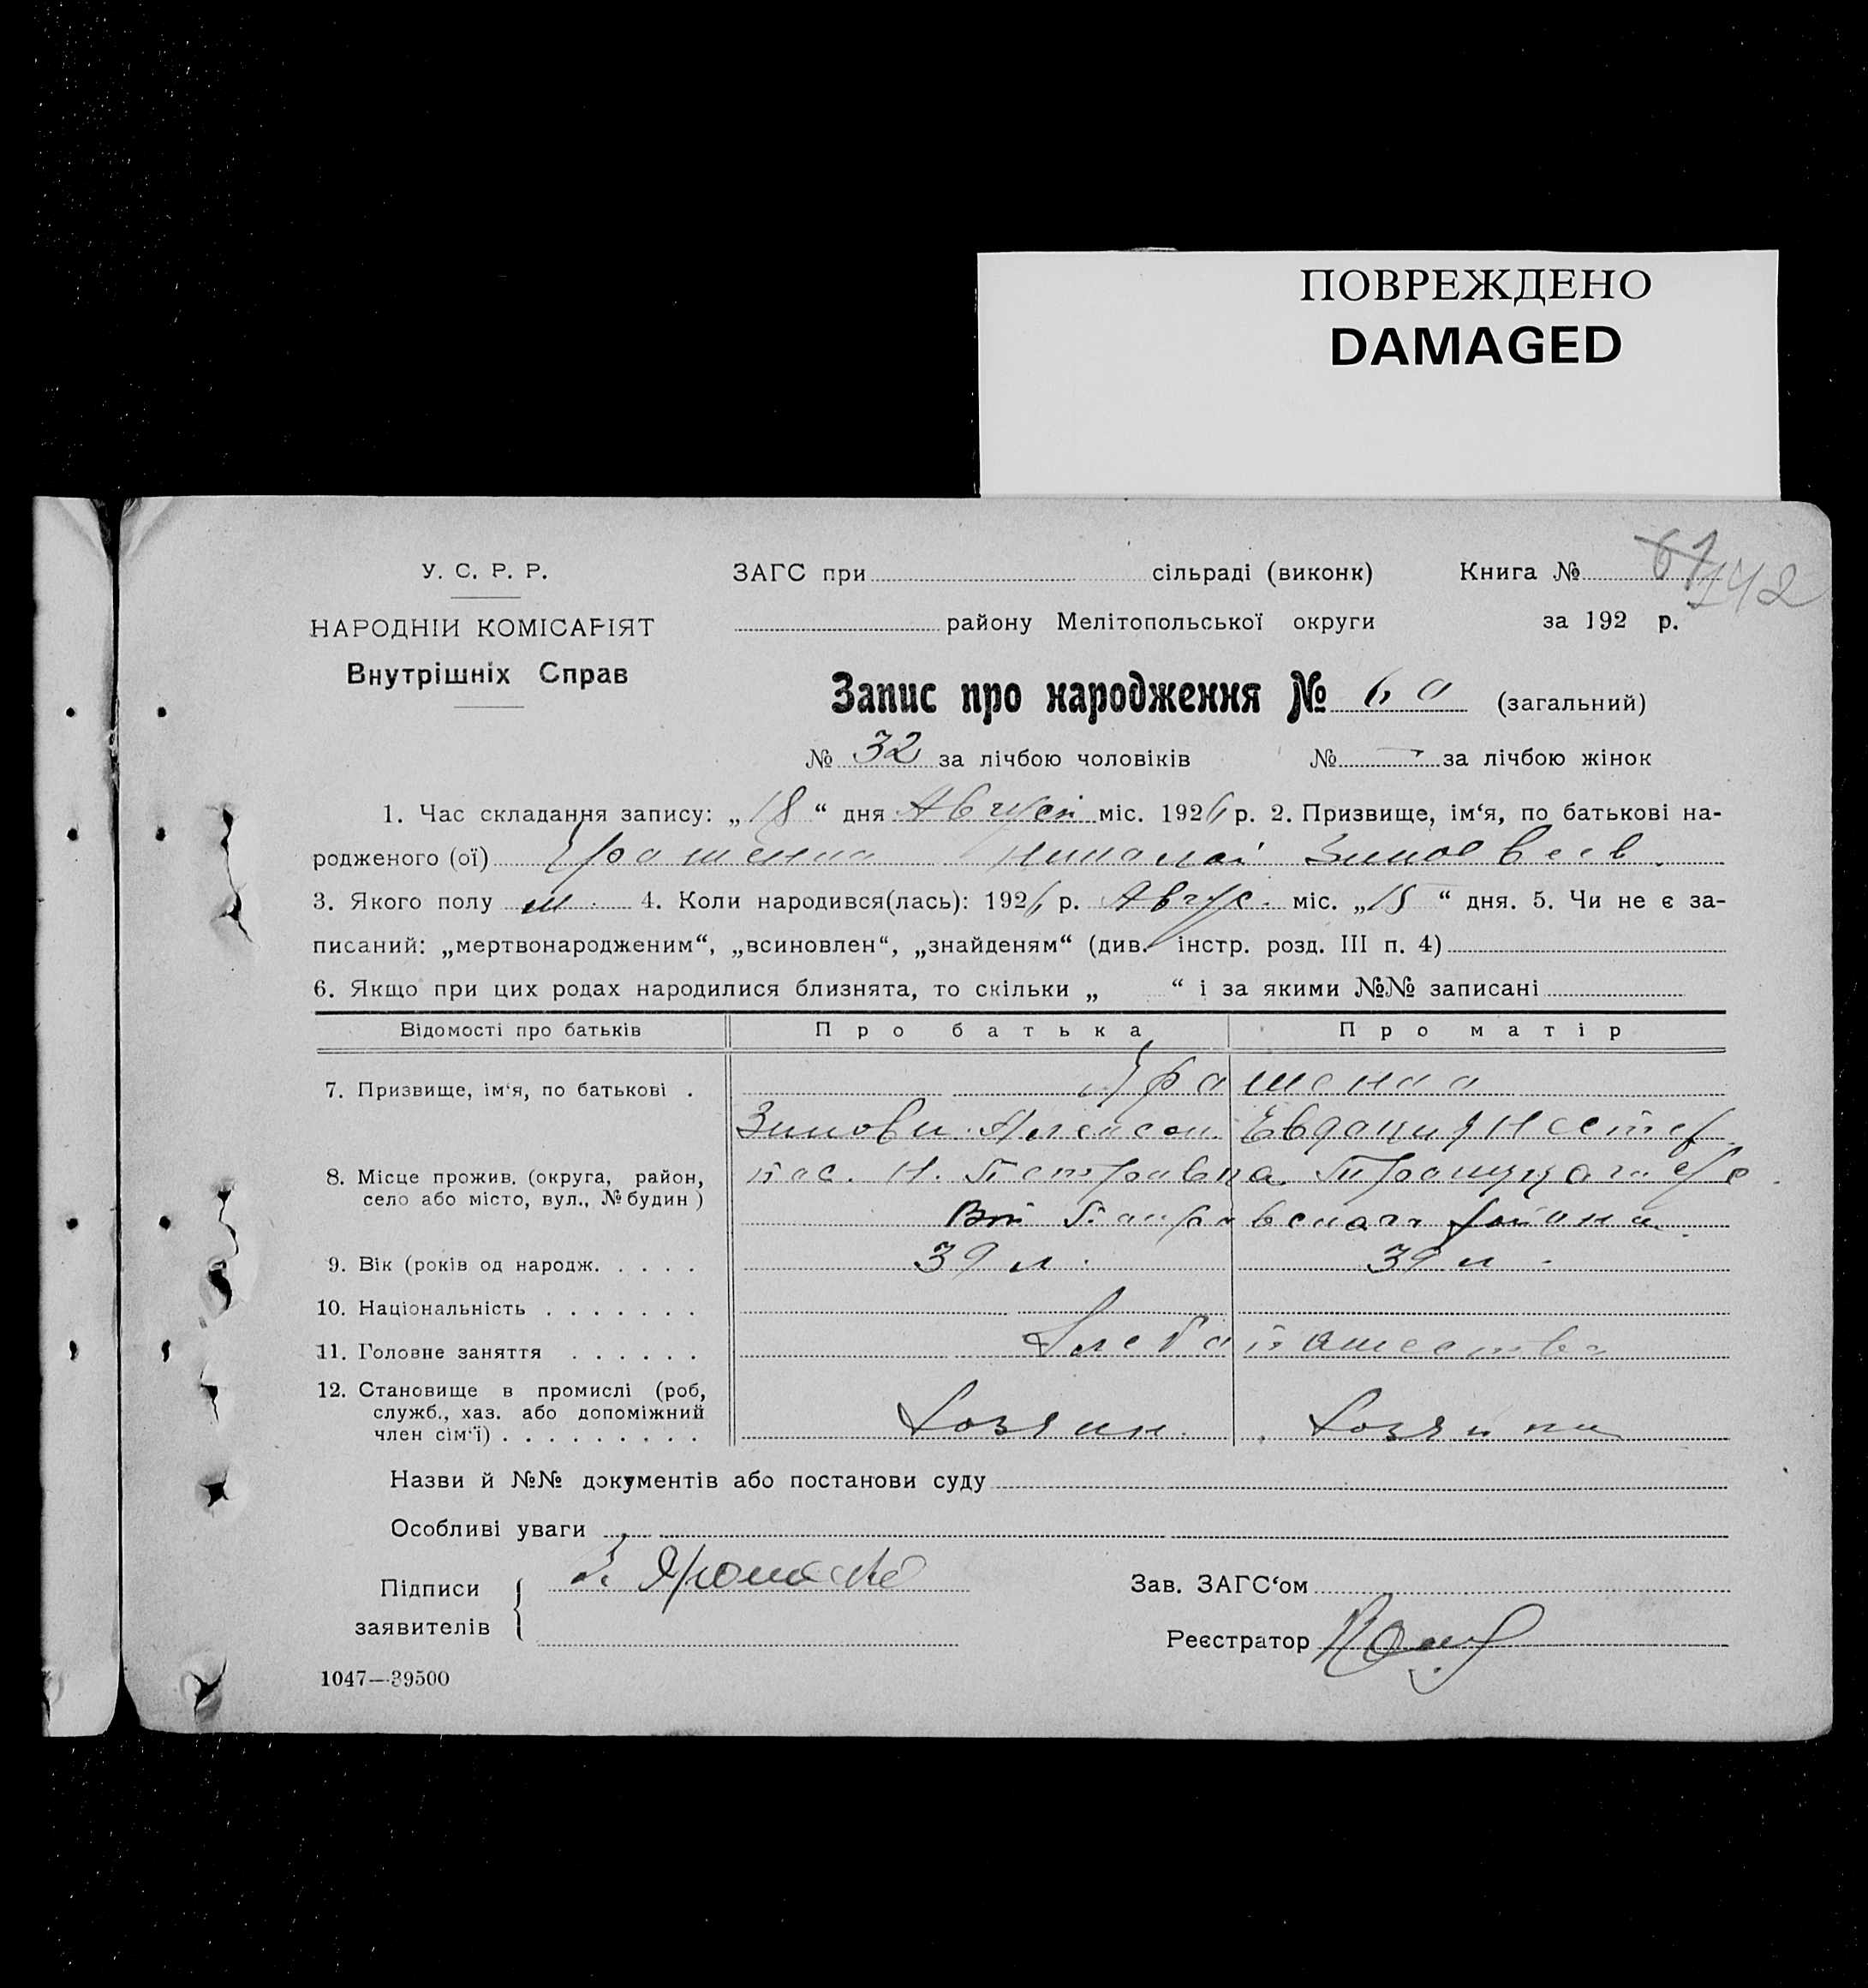 ПОВРЕЖДЕНО
DAMAGED
67 142
У. С. Р. Р.
НАРОДНІЙ КОМІСАРІЯТ
Внутрішніх Справ
ЗАГС при сільраді (виконк) Книга №
району Мелітопольської округи за 192 р.
Запис про народження № 60 (загальний)
№ 32 за лічбою чоловіків № — за лічбою жінок
1. Час складання запису: „18“ дня Август міс. 1926 р. 2. Призвище, ім‘я, по батькові на-
родженого (ої) Николай Зиновеев.
3. Якого полу м. 4. Коли народився(лась): 1926 р. Авгус. міс. „15“ дня. 5. Чи не є за-
писаний: „мертвонародженим“, „всиновлен“, „знайденям“ (див. інстр. розд. III п. 4)
6. Якщо при цих родах народилися близнята, то скільки „ “ і за якими №№ записані
Відомості про батьків Про батька Про матір
7. Призвище, ім‘я, по батькові .
Зинови Алексан. Евдокия Нестер
8. Місце прожив. (округа, район,
село або місто, вул., № будин )
пос. Н.
района
9. Вік (років од народж. . . . . 39 л. 39 л.
10. Національність . . . . . . .
11. Головне заняття . . . . . . Хлебопашество
12. Становище в промислі (роб,
служб., хаз. або допоміжний
член сім‘ї) . . . . . . . . . Хозяин. Хозяйка
Назви й №№ документів або постанови суду
Особливі уваги
Підписи
заявителів
Зав. ЗАГС‘ом
Реєстратор
1047—39500